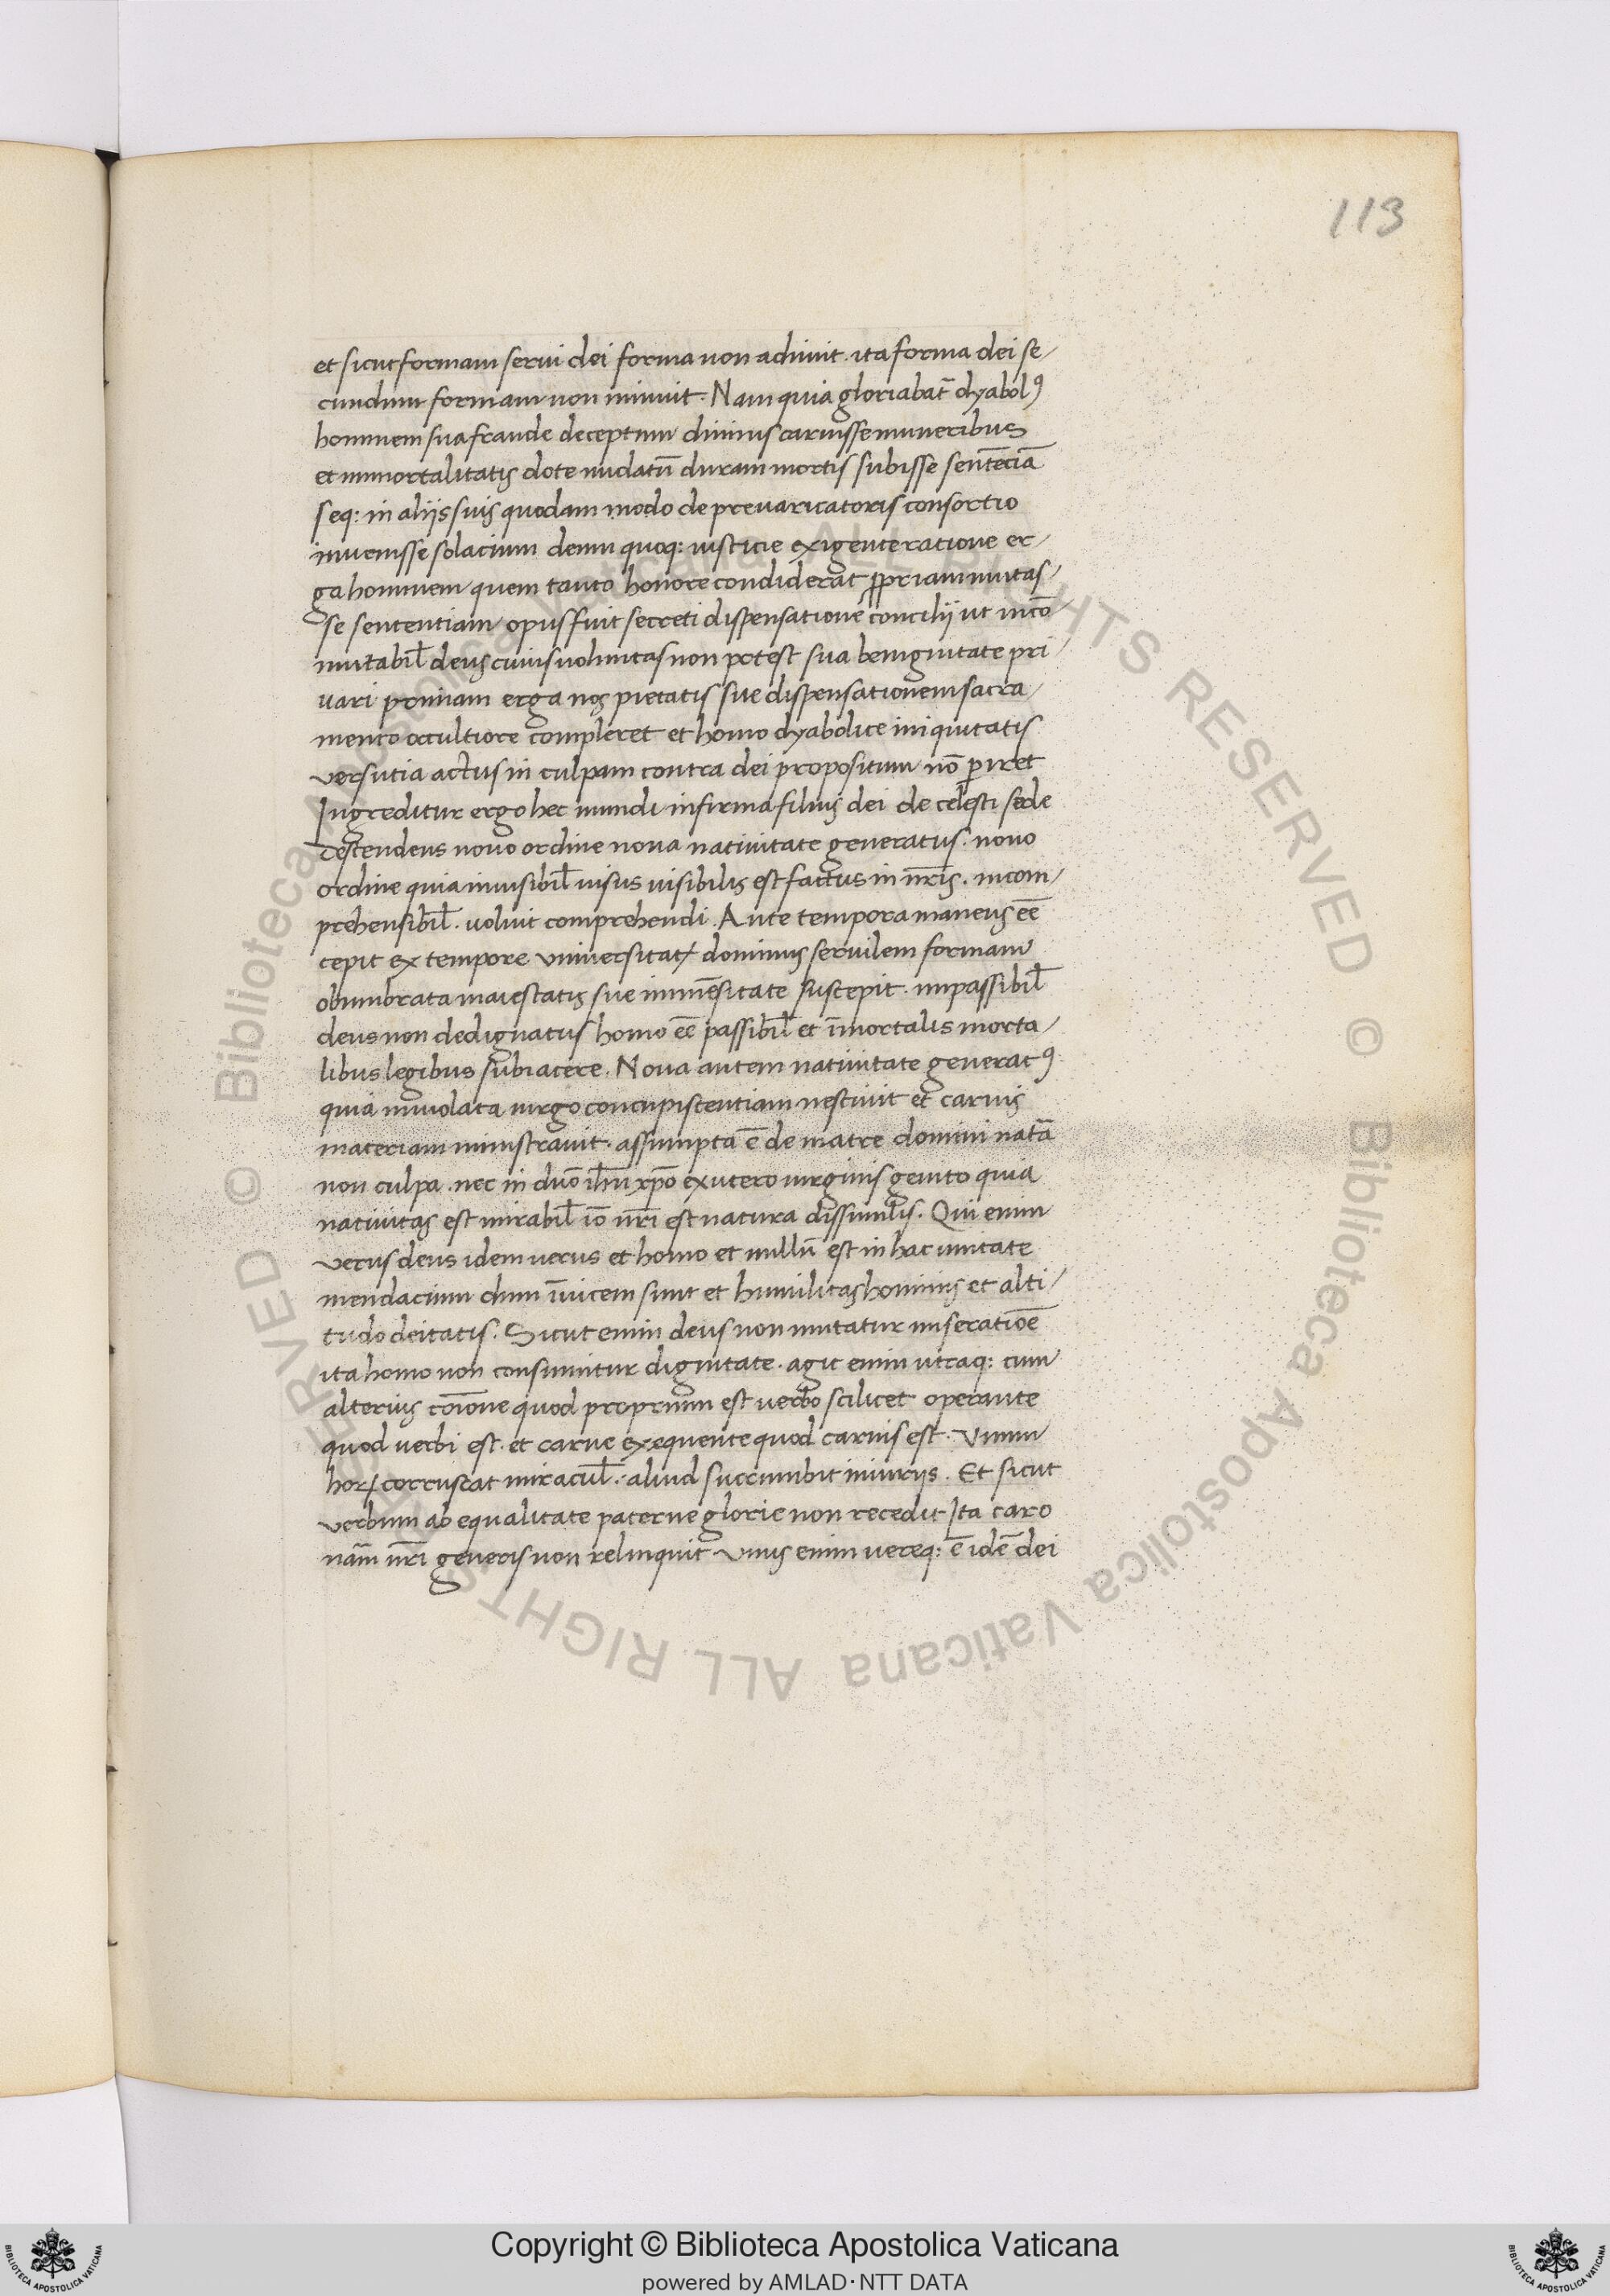 113
et sicut formam servi dei forma non adimit. ita forma dei se/
cundum formam non minuit. Nam quia gloriabat̄ dyabolꝰ
hominem sua fraude deceptum divinis caruisse muneribus
et immortalitatis dote nudatū duram mortis subisse sentēciā
seq: in aliis suis quodam modo de prevaricatoris consortio
invenisse solacium deum quoq: iusticie exigente ratione er/
ga hominem quem tanto honore condiderat ꝓpriam mutas/
se sententiam opus fuit secreti dispensatione concilij ut incō
mutabil̄ deus cuius voluntas non potest sua benignitate pri/
vari primam erga nos pietatis sue dispensationem sacra/
mento occultiore compleret et homo dyabolice iniquitatis
versutia actus in culpam contra dei propositum nō ꝑiret
Ingreditur ergo hec mundi infirma filius dei de celesti sede
descendens novo ordine nova nativitate generatus. novo
ordine quia invisibil̄ visus visibilis est factus in nr̄is. incom/
prehensibil̄. voluit comprehendi. Ante tempora manens eē
cepit ex tempore universitatꝭ dominus servilem formam
obumbrata maiestatis sue immēsitate suscepit. impassibil̄
deus non dedignatus homo eē passibil̄ et īmortalis morta/
libus legibus subiacere. Nova autem nativitate generatꝰ
quia inviolata virgo concupiscentiam nescivit et carnis
materiam ministravit. assumpta ē de matre domini natā
non culpa. nec in duō ih̄u xp̄o ex utero virginis genito quia
nativitas est mirabil̄ iō nr̄i est natura dissimilis. Qui enim
verus deus idem verus et homo et nullū est in hac unitate
mendacium dum īvicem sunt et humilitas hominis et alti/
tudo deitatis. Sicut enim deus non mutatur miseratiōē
ita homo non consumitur dignitate. agit enim utraq: cum
alterius cōīone quod proprium est verbo scilicet operante
quod verbi est. et carne exequente quod carnis est. Unum
horꝝ corruscat miracul̄. aliud succumbit iniuriis. Et sicut
verbum ab equalitate paterne glorie non recedit Ita caro
nām nr̄i generis non relinquit Unus enim vereq: ē idē dei
Copyright © Biblioteca Apostolica Vaticana
powered by AMLAD·NTT DATA